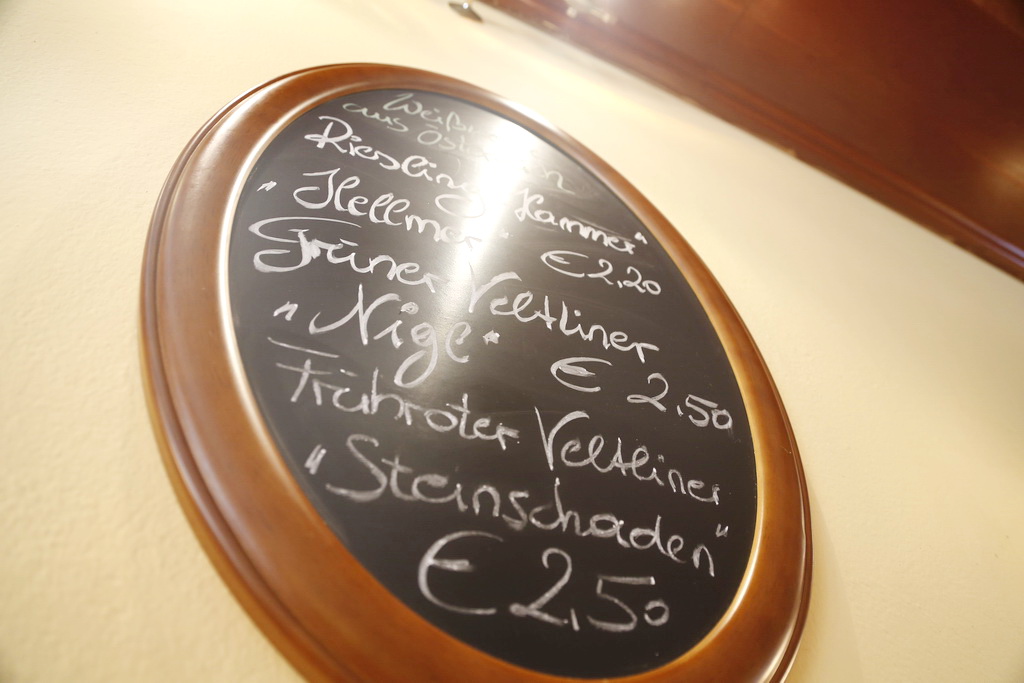 aus
Riesling Hammer"
"Hellmer" €2,20
Grüner Veltliner
"Nigl" € 2,50
Frühroter Veltliner
"Steinschaden"
€2,50